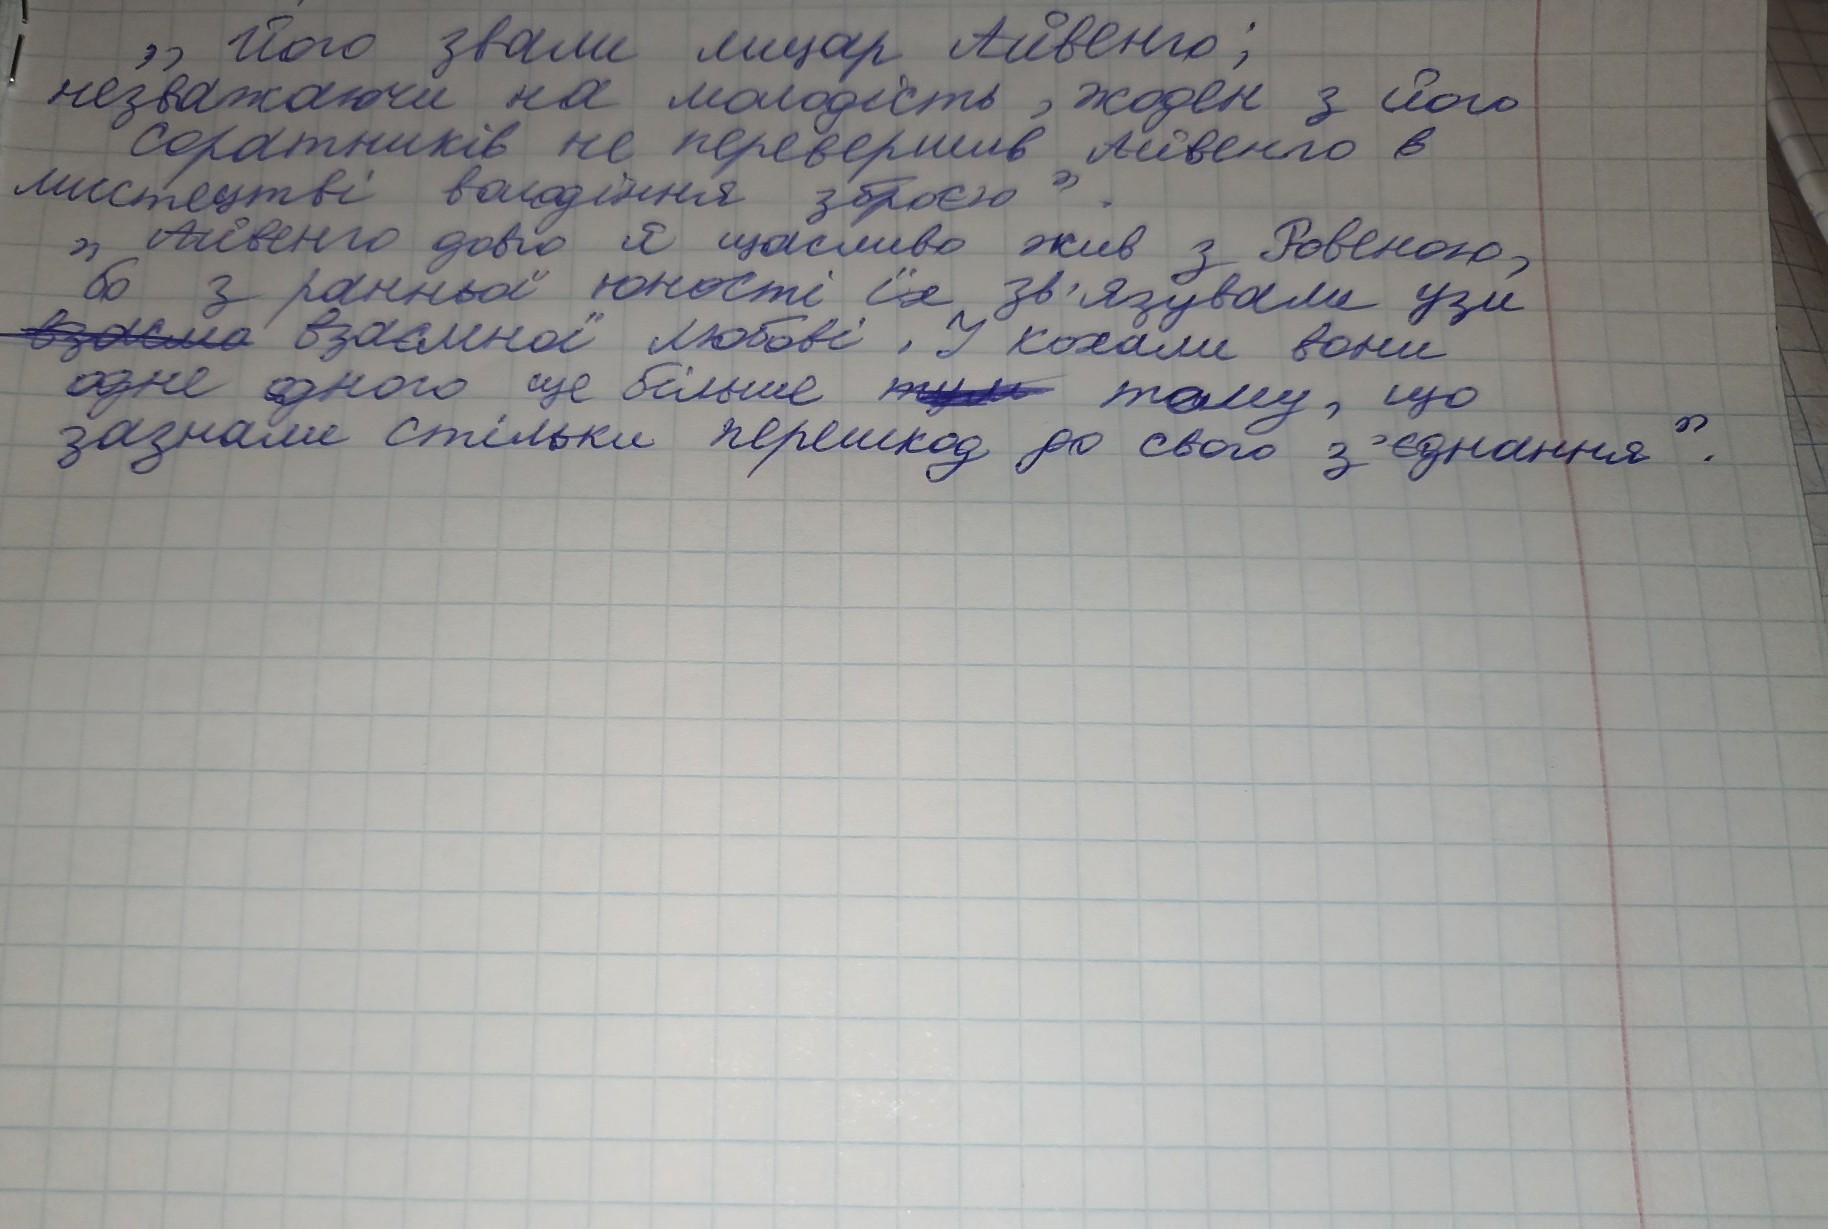 „ Його звали лицар Айвенго;
незважаючи на молодість, жоден з його
соратників не перевершив Айвенго в
мистецтві володіння зброєю".
„ Айвенго довго й щасливо жив з Ровеною,
бо з ранньої юності їх зв'язували узи
взаємо взаємної любові. У кохали вони
одне одного ще більше тому, що
зазнали стільки перешкод до свого з'єднання".